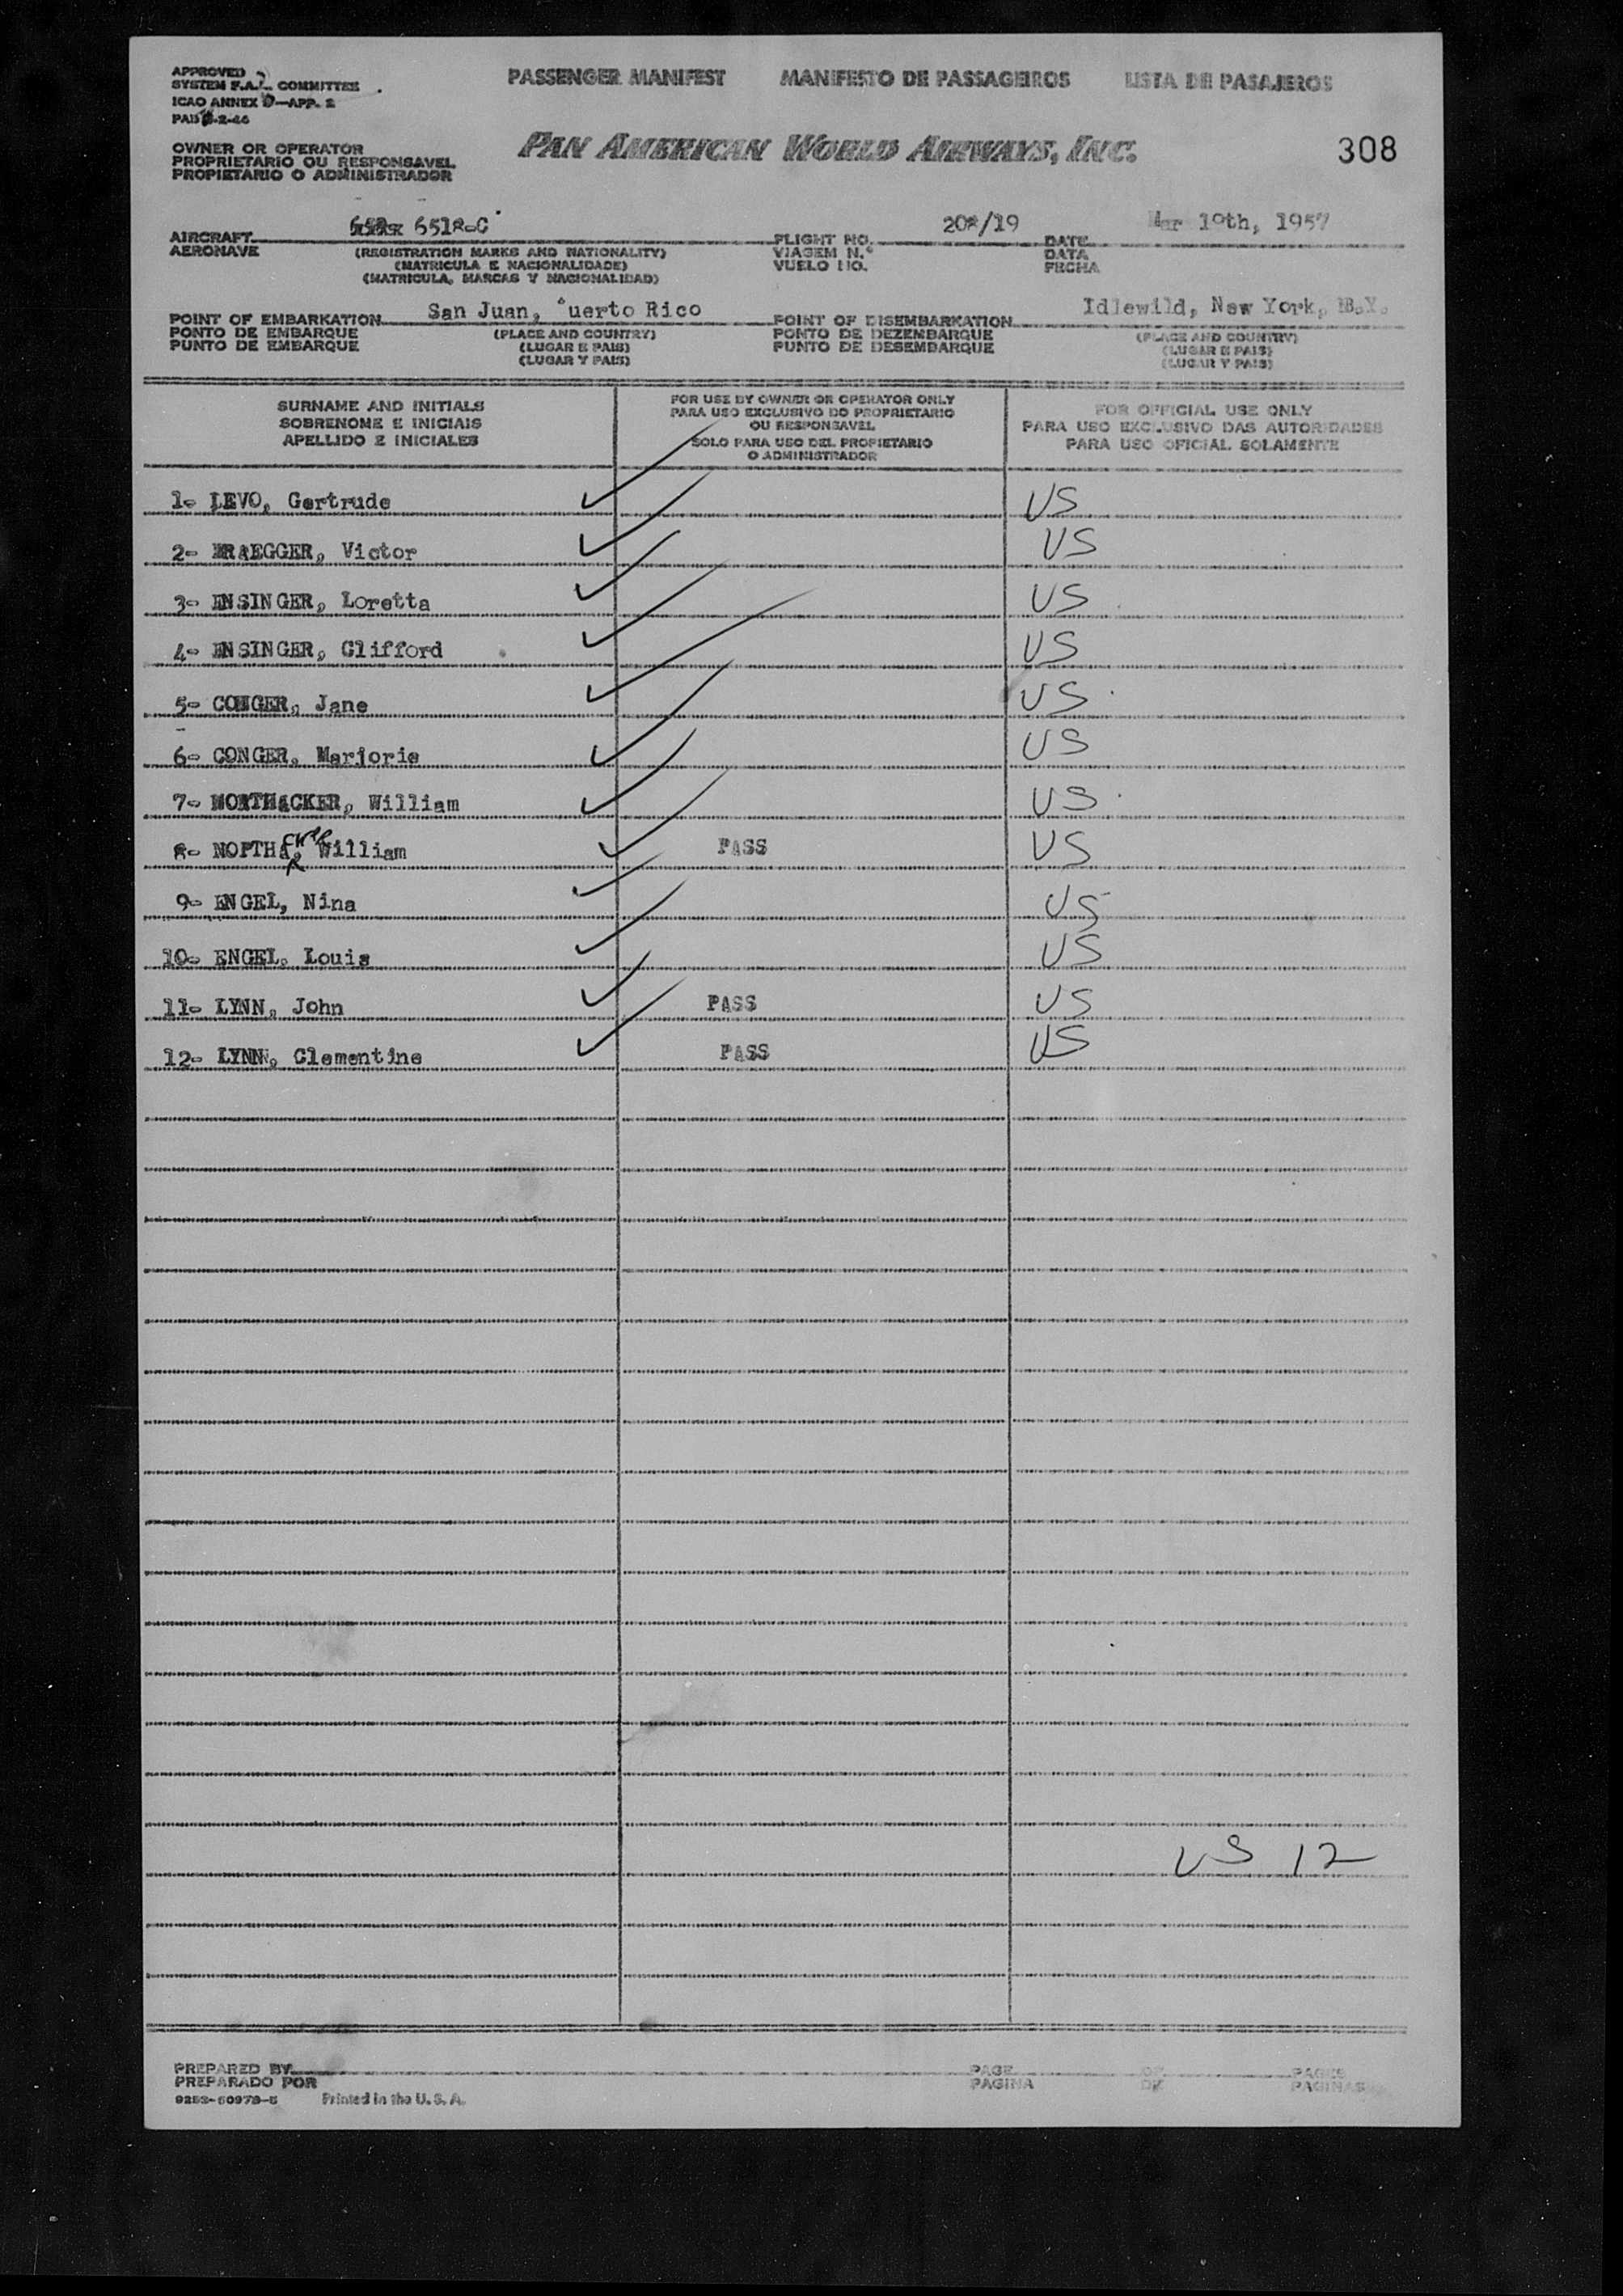 APPROVED
SYSTEM F.A.L. COMMITTEE
ICAO ANNEX 9—APP. 2
PASSENGER MANIFEST MANIFESTO DE PASSAGEIROS LISTA DE PASAJEROS
OWNER OR OPERATOR
PROPRIETARIO OU RESPONSAVEL
PROPIETARIO O ADMINISTRADOR
PAN AMERICAN WORLD AIRWAYS, INC.
308
AIRCRAFT 6518-C FLIGHT NO. 208/19 DATE Mar 19th, 1957
AERONAVE (REGISTRATION MARKS AND NATIONALITY) VIAGEM N.º DATA
(MATRICULA E NACIONALIDADE) VUELO NO. FECHA
(MATRICULA, MARCAS Y NACIONALIDAD)
POINT OF EMBARKATION San Juan, uerto Rico POINT OF DISEMBARKATION Idlewild, New York,
PONTO DE EMBARQUE (PLACE AND COUNTRY) PONTO DE DEZEMBARQUE (PLACE AND COUNTRY)
PUNTO DE EMBARQUE (LUGAR E PAIS) PUNTO DE DESEMBARQUE (LUGAR E PAIS)
(LUGAR Y PAIS) (LUGAR Y PAIS)
SURNAME AND INITIALS
SOBRENOME E INICIAIS
APELLIDO E INICIALES
FOR USE BY OWNER OR OPERATOR ONLY
PARA USO EXCLUSIVO DO PROPRIETARIO
OU RESPONSAVEL
SOLO PARA USO DEL PROPIETARIO
O ADMINISTRADOR
FOR OFFICIAL USE ONLY
PARA USO EXCLUSIVO DAS AUTORIDADES
PARA USO OFICIAL SOLAMENTE
1- LEVO, Gertrude US
2- BRAEGGER, Victor US
3- ENSINGER, Loretta US
4- ENSINGER, Clifford US
5- CONGER, Jane US
6- CONGER, Marjorie US
7- NORTHACKER, William US
8- NORTHA, William PASS US
9- ENGEL, Nina US
10- ENGEL, Louis US
11- LYNN, John PASS US
12- LYNN, Clementine PASS US
US 12
PREPARED BY PAGE OF PAGES
PREPARADO POR PAGINA DE PAGINAS
Printed in the U. S. A.